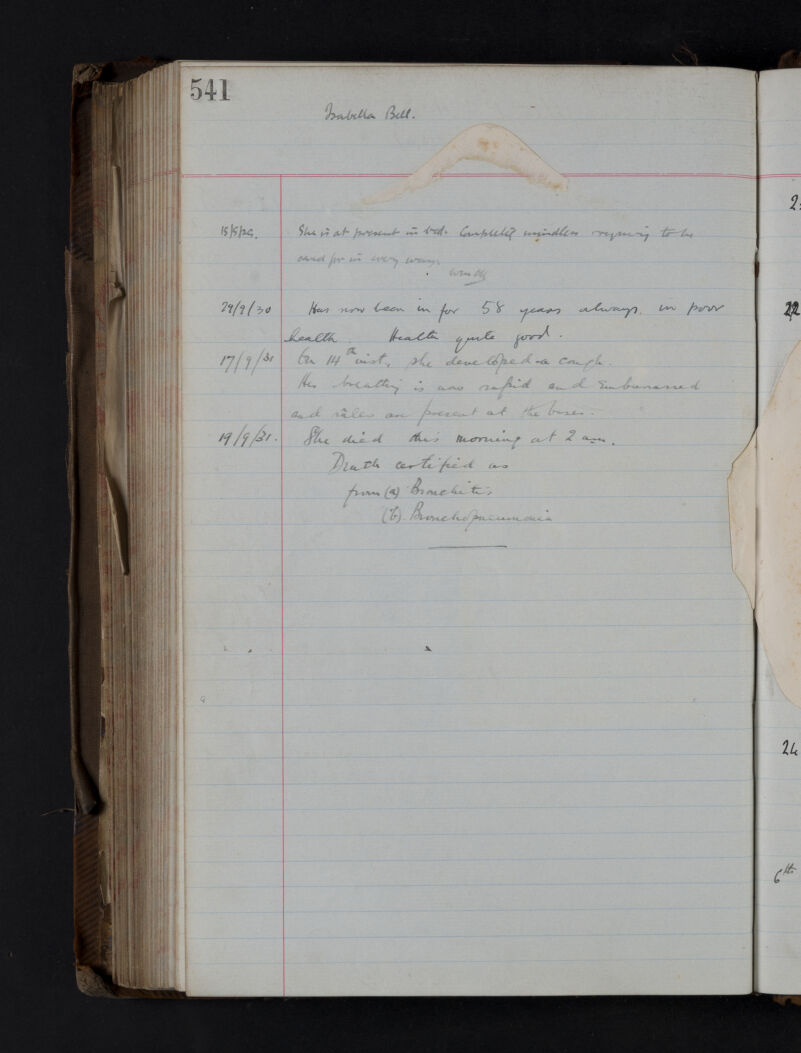 541
Isabella Bell.
She is at present in bed. Completely mindless requiring to be
cared for in every way.
29/9/30 Has now been in for 58 years always in poor
health. Health quite good.
17/9/31 On 14th inst. she developed a cough.
Her breathing is now rapid and embarrassed
and râles are present at the bases.
19/9/31. She died this morning at 2 a.m.
Death certified as
from (a) Bronchitis
(b) Bronchopneumonia
22
24
6th